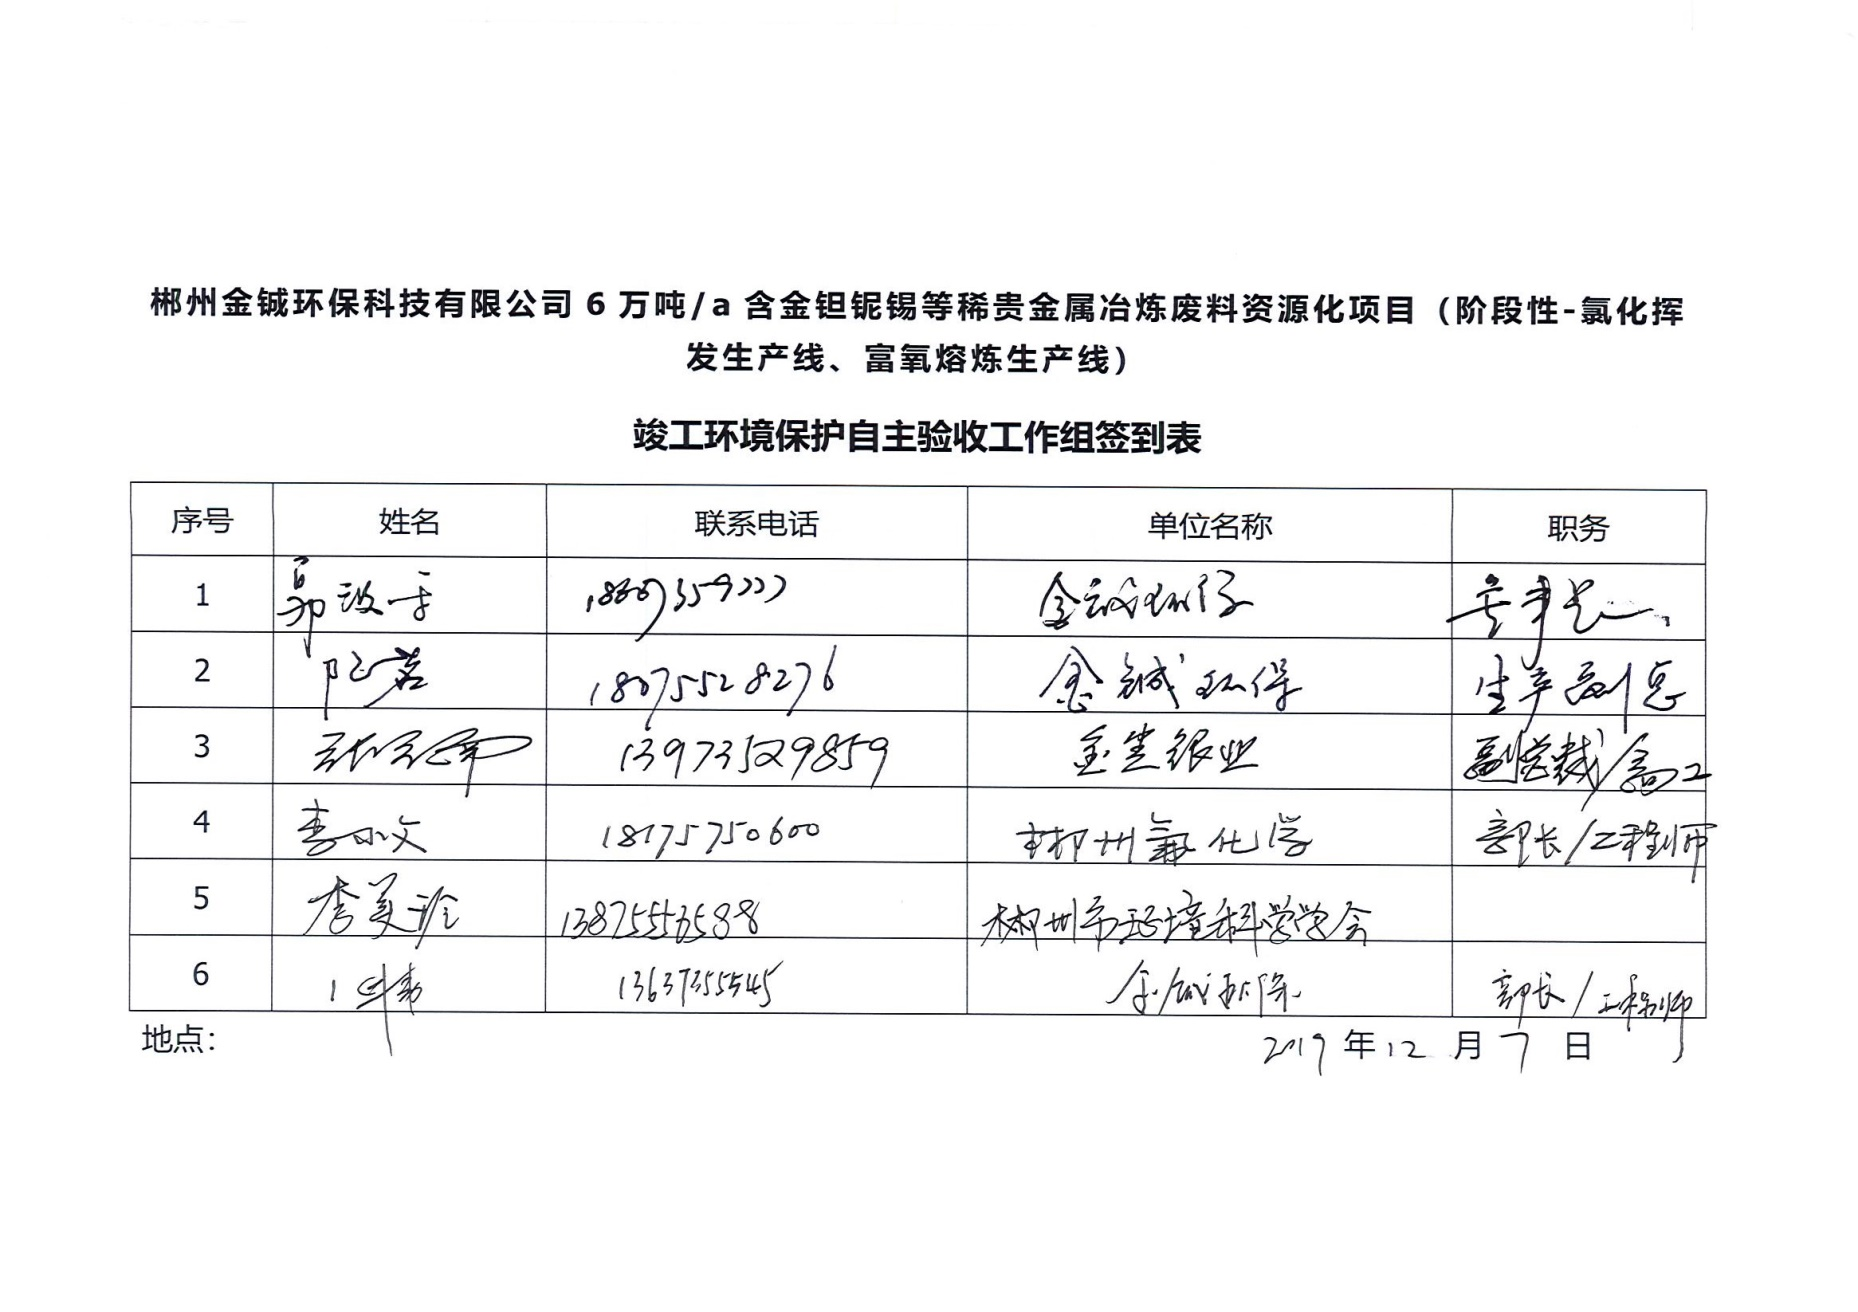 郴州金铖环保科技有限公司 6 万吨/a 含金钽铌锡等稀贵金属冶炼废料资源化项目（阶段性-氯化挥
发生产线、富氧熔炼生产线）
竣工环境保护自主验收工作组签到表
序号 姓名 联系电话 单位名称 职务
1 金铖环保
2 18075528276 金铖环保 生产副总
3 13973529859 金贵银业 副总裁/高工
4 李小文 18175750600 郴州氟化学 部长/工程师
5 李美玲 13875556588 郴州市环境科学学会
6 13637355545 金铖环保 部长/工程师
地点： 2019 年 12 月 7 日